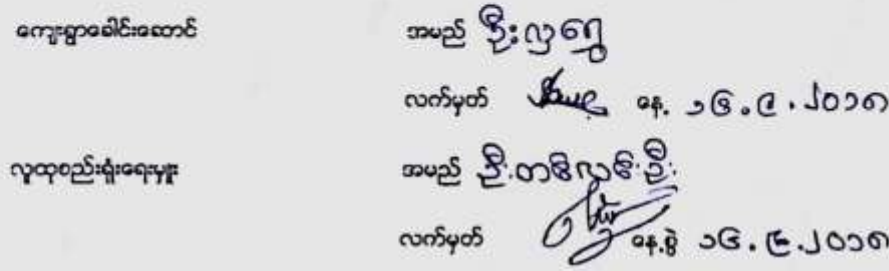 ကျေးရွာခေါင်းဆောင် အမည် ဦးလှရွှေ
လက်မှတ် နေ့ ၁၆.၉.၂၀၁၈
လူထုစည်းရုံးရေးမှူး အမည် ဦး
လက်မှတ် နေ့စွဲ ၁၆.၉.၂၀၁၈